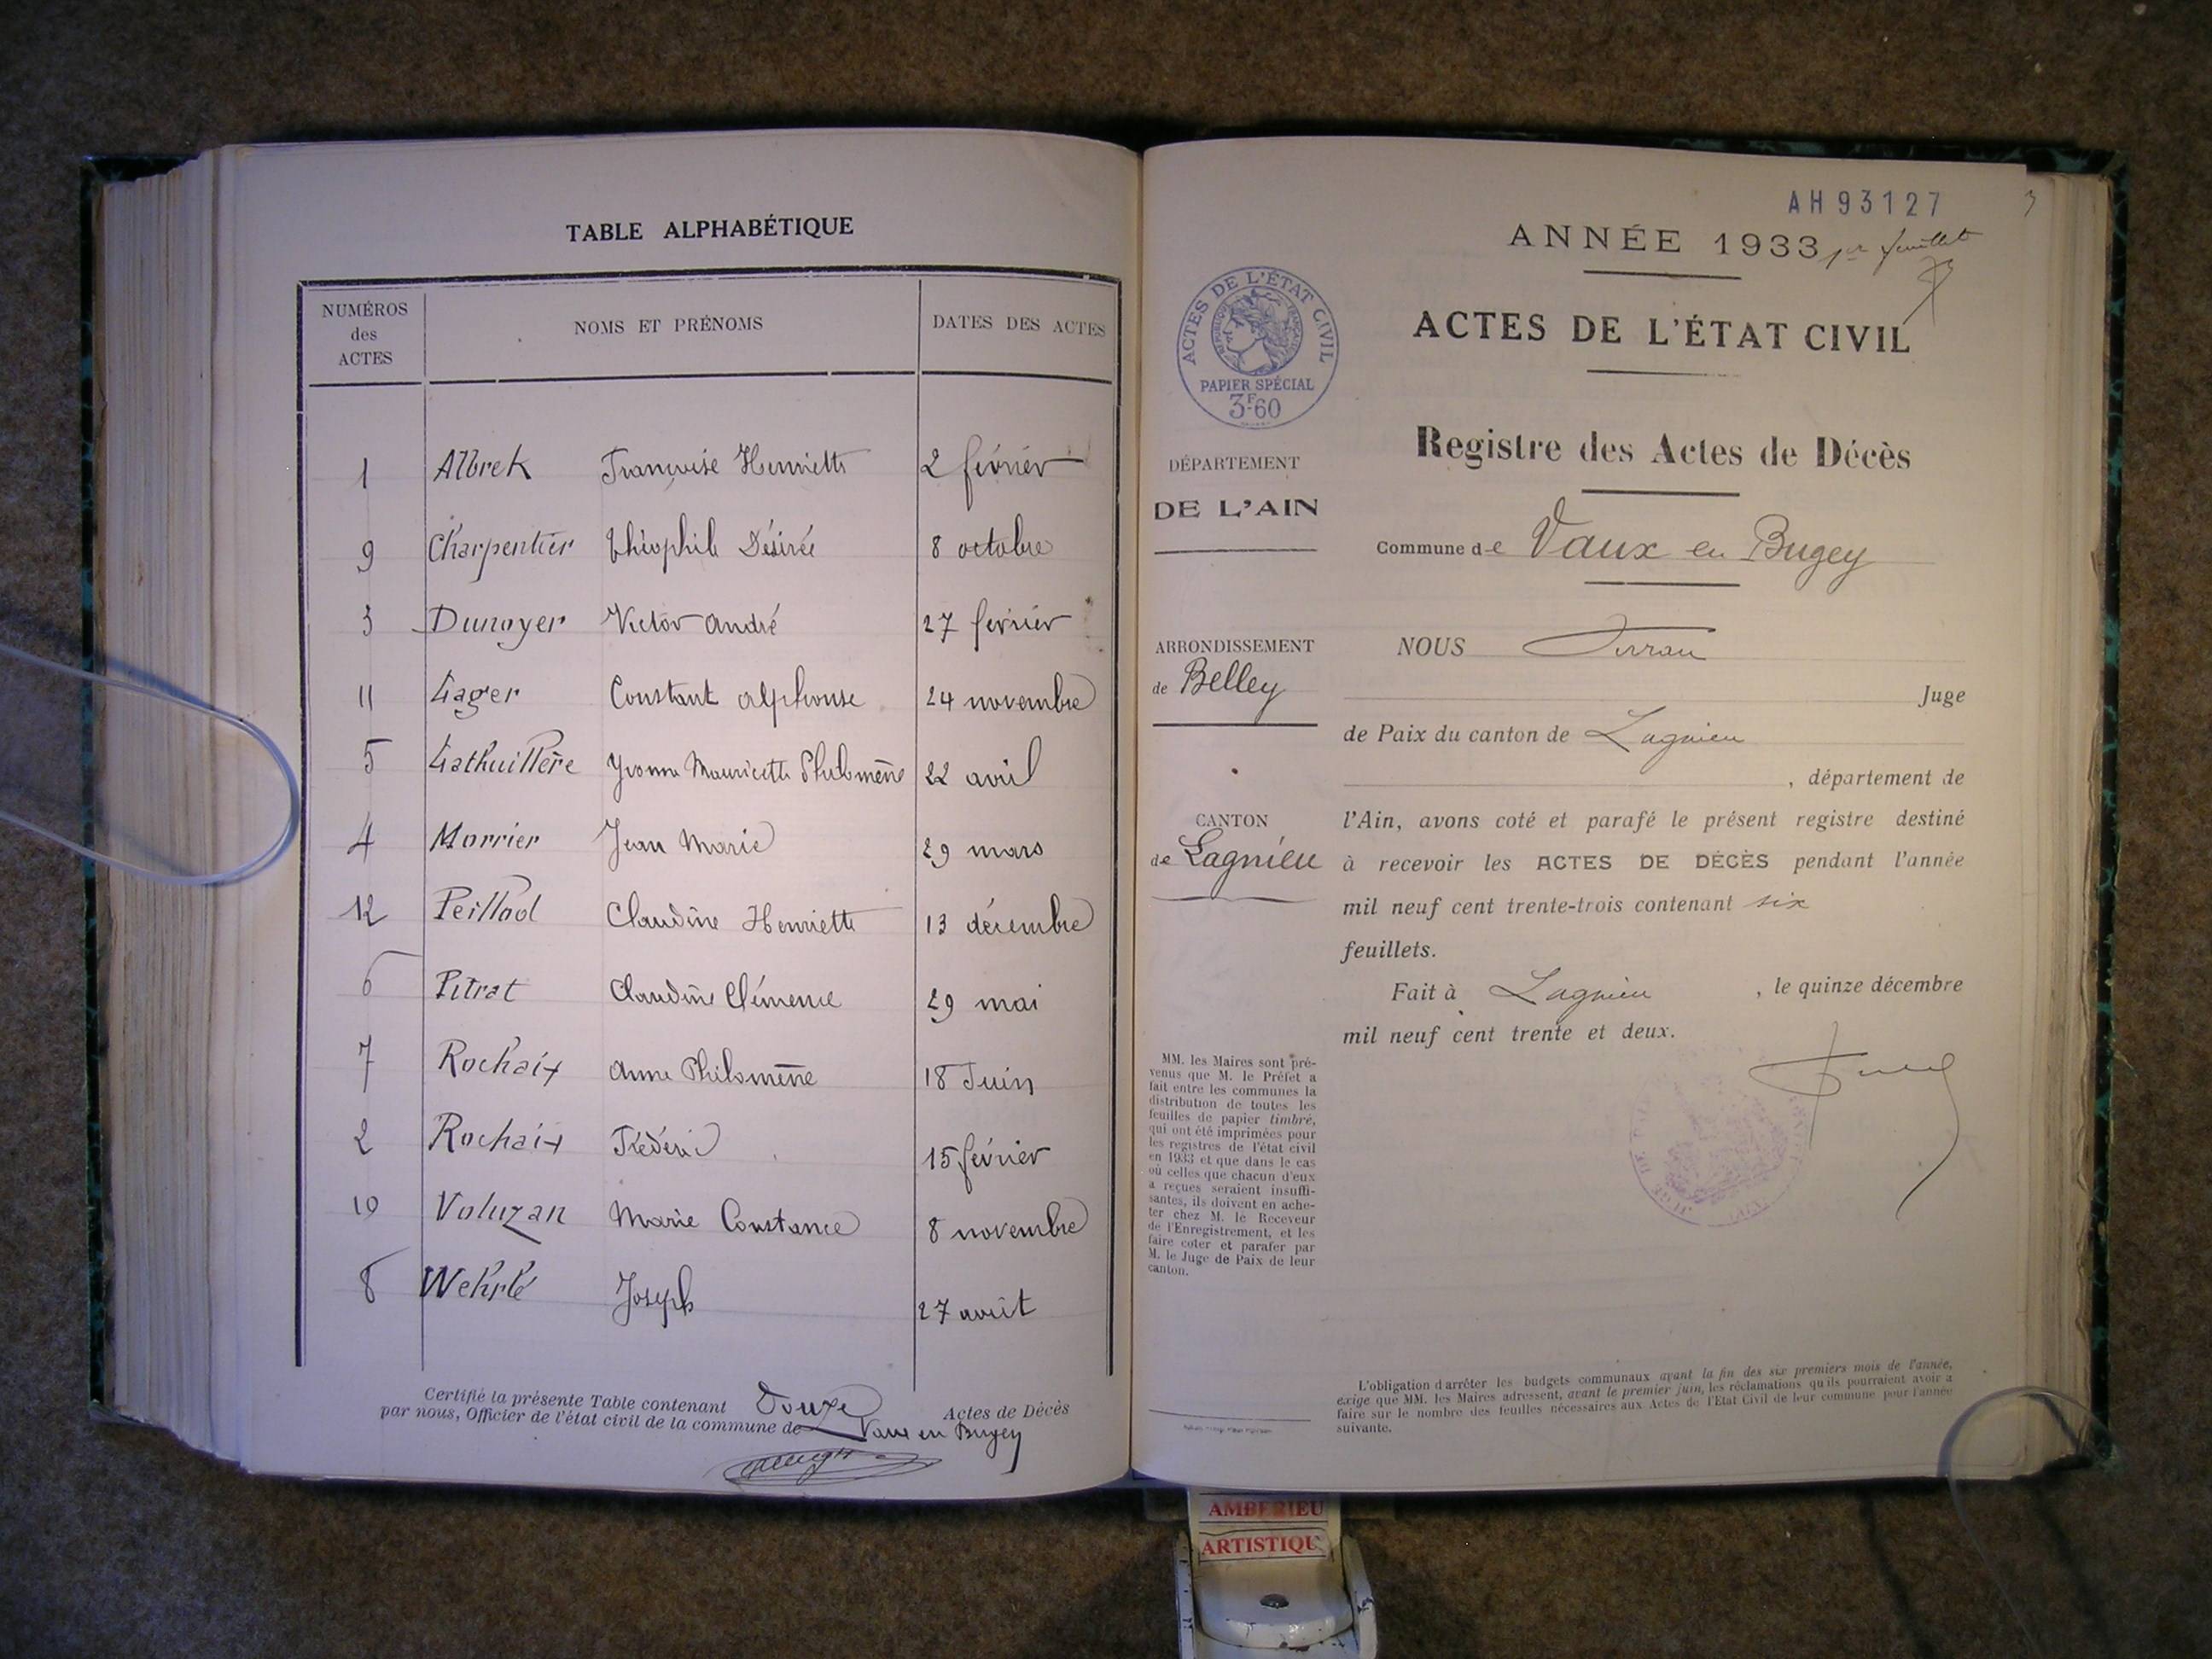 TABLE ALPHABÉTIQUE
NUMÉROS des ACTES NOMS ET PRÉNOMS DATES DES ACTES
1 Albrek Françoise Henriette 2 février
9 Charpentier Théophile Désirée 8 octobre
3 Dunoyer Victor André 27 février
11 Lager Constant Alphonse 24 novembre
5 Lathuillère Yvonne Mauricette Philomène 22 avril
4 Morrier Jean Marie 29 mars
12 Peillod Claudine Henriette 13 décembre
6 Pitrat Claudine Clémence 29 mai
7 Rochaix Anne Philomène 18 Juin
2 Rochaix Frédéric 15 février
10 Voluzan Marie Constance 8 novembre
8 Wehrlé Joseph 27 août
Certifié la présente Table contenant Douze Actes de Décès
par nous, Officier de l'état civil de la commune de Vaux en Bugey
AH93127
3
ANNÉE 1933 1er feuillet
ACTES DE L'ÉTAT CIVIL
PAPIER SPÉCIAL
3F60
ACTES DE L'ÉTAT CIVIL
Registre des Actes de Décès
DÉPARTEMENT
DE L'AIN
Commune de Vaux en Bugey
ARRONDISSEMENT
de Belley
NOUS
Juge
de Paix du canton de Lagnieu
, département de
CANTON
de Lagnieu
l'Ain, avons coté et parafé le présent registre destiné
à recevoir les ACTES DE DÉCÈS pendant l'année
mil neuf cent trente-trois contenant six
feuillets.
Fait à Lagnieu , le quinze décembre
mil neuf cent trente et deux.
MM. les Maires sont pré-
venus que M. le Préfet a
fait entre les communes la
distribution de toutes les
feuilles de papier timbré,
qui ont été imprimées pour
les registres de l'état civil
en 1933 et que dans le cas
où celles que chacun d'eux
a reçues seraient insuffi-
santes, ils doivent en ache-
ter chez M. le Receveur
de l'Enregistrement, et les
faire coter et parafer par
M. le Juge de Paix de leur
canton.
L'obligation d'arrêter les budgets communaux avant la fin des six premiers mois de l'année,
exige que MM. les Maires adressent, avant le premier juin, les réclamations qu'ils pourraient avoir à
faire sur le nombre des feuilles nécessaires aux Actes de l'Etat Civil de leur commune pour l'année
suivante.
AMBERIEU
ARTISTIQU